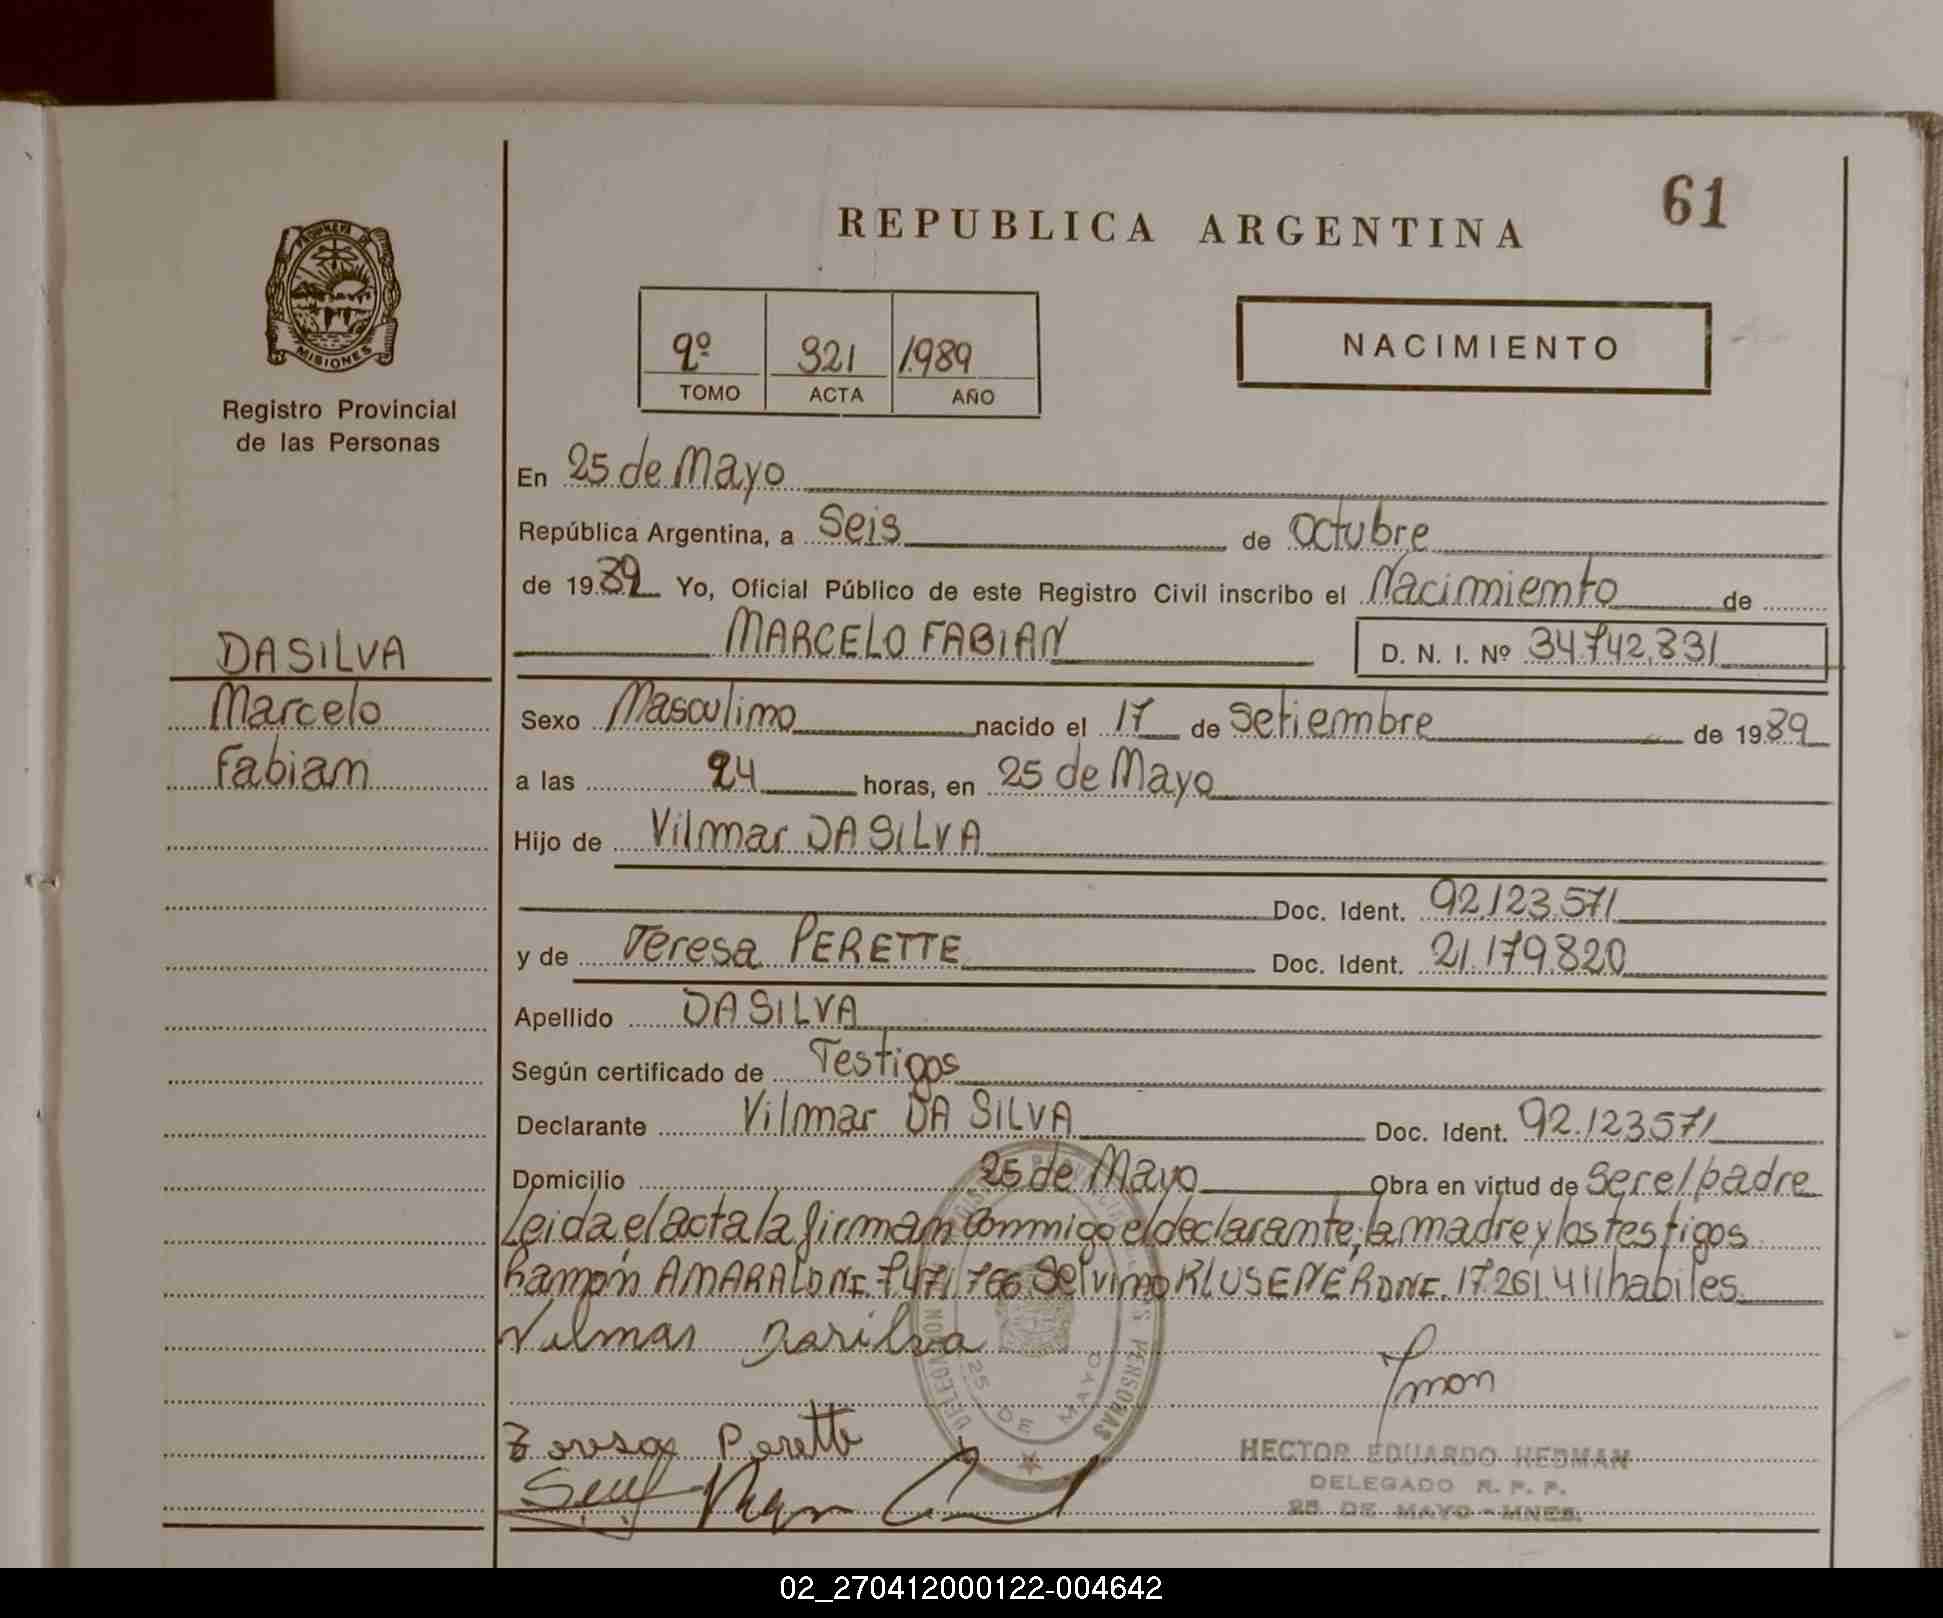 61
REPUBLICA ARGENTINA
PROVINCIA DE
MISIONES
Registro Provincial
de las Personas
2º 321 1.989
TOMO ACTA AÑO
NACIMIENTO
En 25 de Mayo
República Argentina, a Seis de Octubre
de 1989 Yo, Oficial Público de este Registro Civil inscribo el Nacimiento de
MARCELO FABIAN D. N. I. Nº 34.742.831
DA SILVA
Marcelo
Fabian
Sexo Masculino nacido el 17 de Setiembre de 1989
a las 24 horas, en 25 de Mayo
Hijo de Vilmar DA SILVA
Doc. Ident. 92.123.571
y de Teresa PERETTE Doc. Ident. 21.179.820
Apellido DA SILVA
Según certificado de Testigos
Declarante Vilmar DA SILVA Doc. Ident. 92.123571
Domicilio 25 de Mayo Obra en virtud de Ser el padre
Leida, el acta la firman conmigo el declarante, la madre y los testigos
Ramón AMARAL DNI. 7471.766 Selvino KLUSENER DNI. 17.261.411 habiles
Vilmar Dasilva
Teresa Perette
25 DE MAYO
HECTOR EDUARDO HEDMAN
DELEGADO R. P. P.
25 DE MAYO - MNES.
02_270412000122-004642